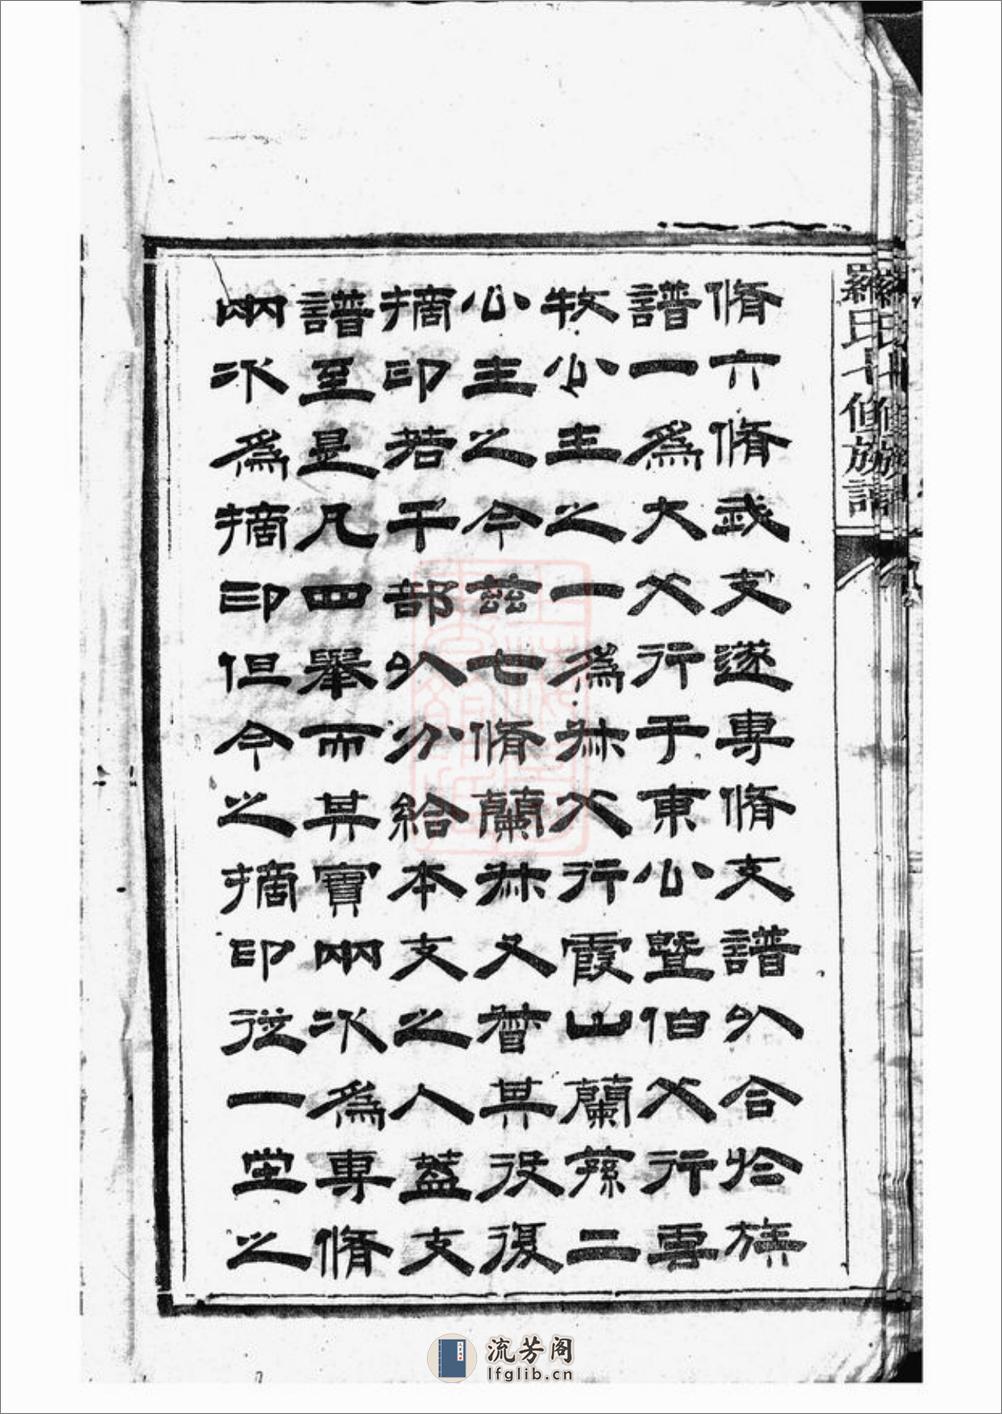 羅氏七修族譜
脩六脩我支遂專脩支譜以合於族
譜一為大父行于東公暨伯父行雲
牧公主之一為叔父行霞山蘭蓀二
公主之今茲七脩蘭叔又督其役復
摘印若干部以分給本支之人蓋支
譜至是凡四舉而其實兩次為專脩
兩次為摘印但今之摘印從一堂之
流芳阁
lfglib.cn